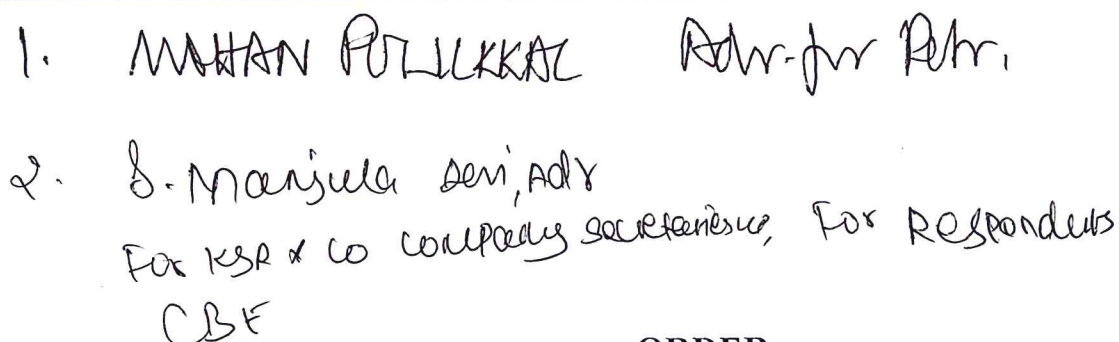 1. MAHAN PULIKKAL Adv. for Petr.
2. S. Manjula Devi, Adv
For KSR & Co Company Secretaries LLP, For Respondents
CBE
ORDER